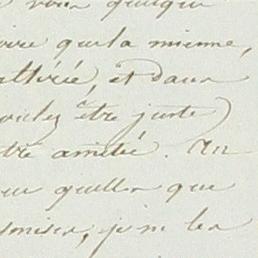 vous quelque
oire que la mienne,
altérée, et dans
voulez être juste)
tre amitié. Un
quelles que
omises, je m les